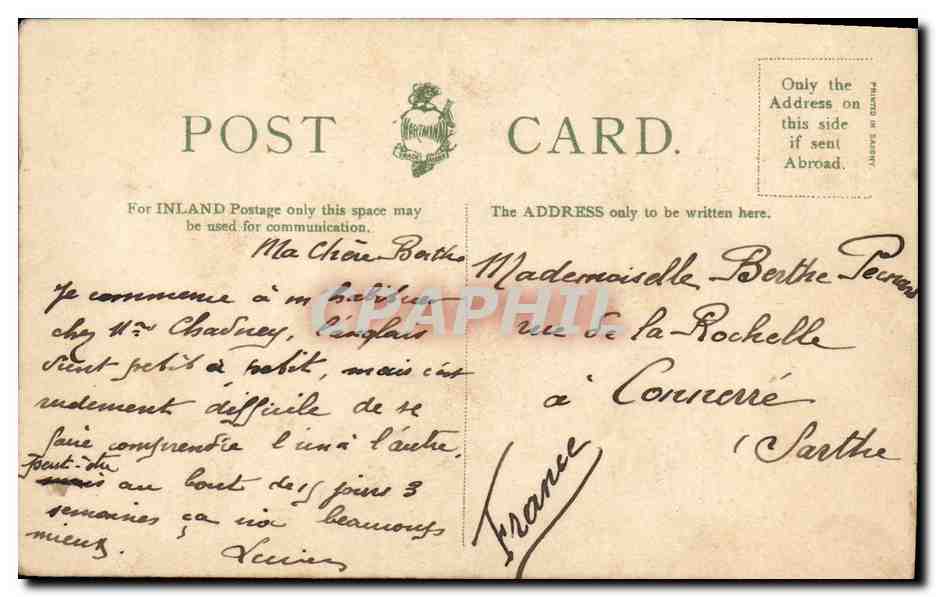 POST CARD.
HARTMANN
Only the
Address on
this side
if sent
Abroad.
PRINTED IN SAXONY
For INLAND Postage only this space may
be used for communication.
The ADDRESS only to be written here.
CPAPHIL
Ma Chère Berthe
Je commence à m'habituer
chez Mrs l'anglais
vient petit à petit, mais c'est
rudement difficile de se
faire comprendre l'un à l'autre,
peut-être
mais au bout de 15 jours 3
semaines ça ira beaucoup
mieux.
Lucien
Mademoiselle Berthe
rue de la Rochelle
à Connerré
(Sarthe
France